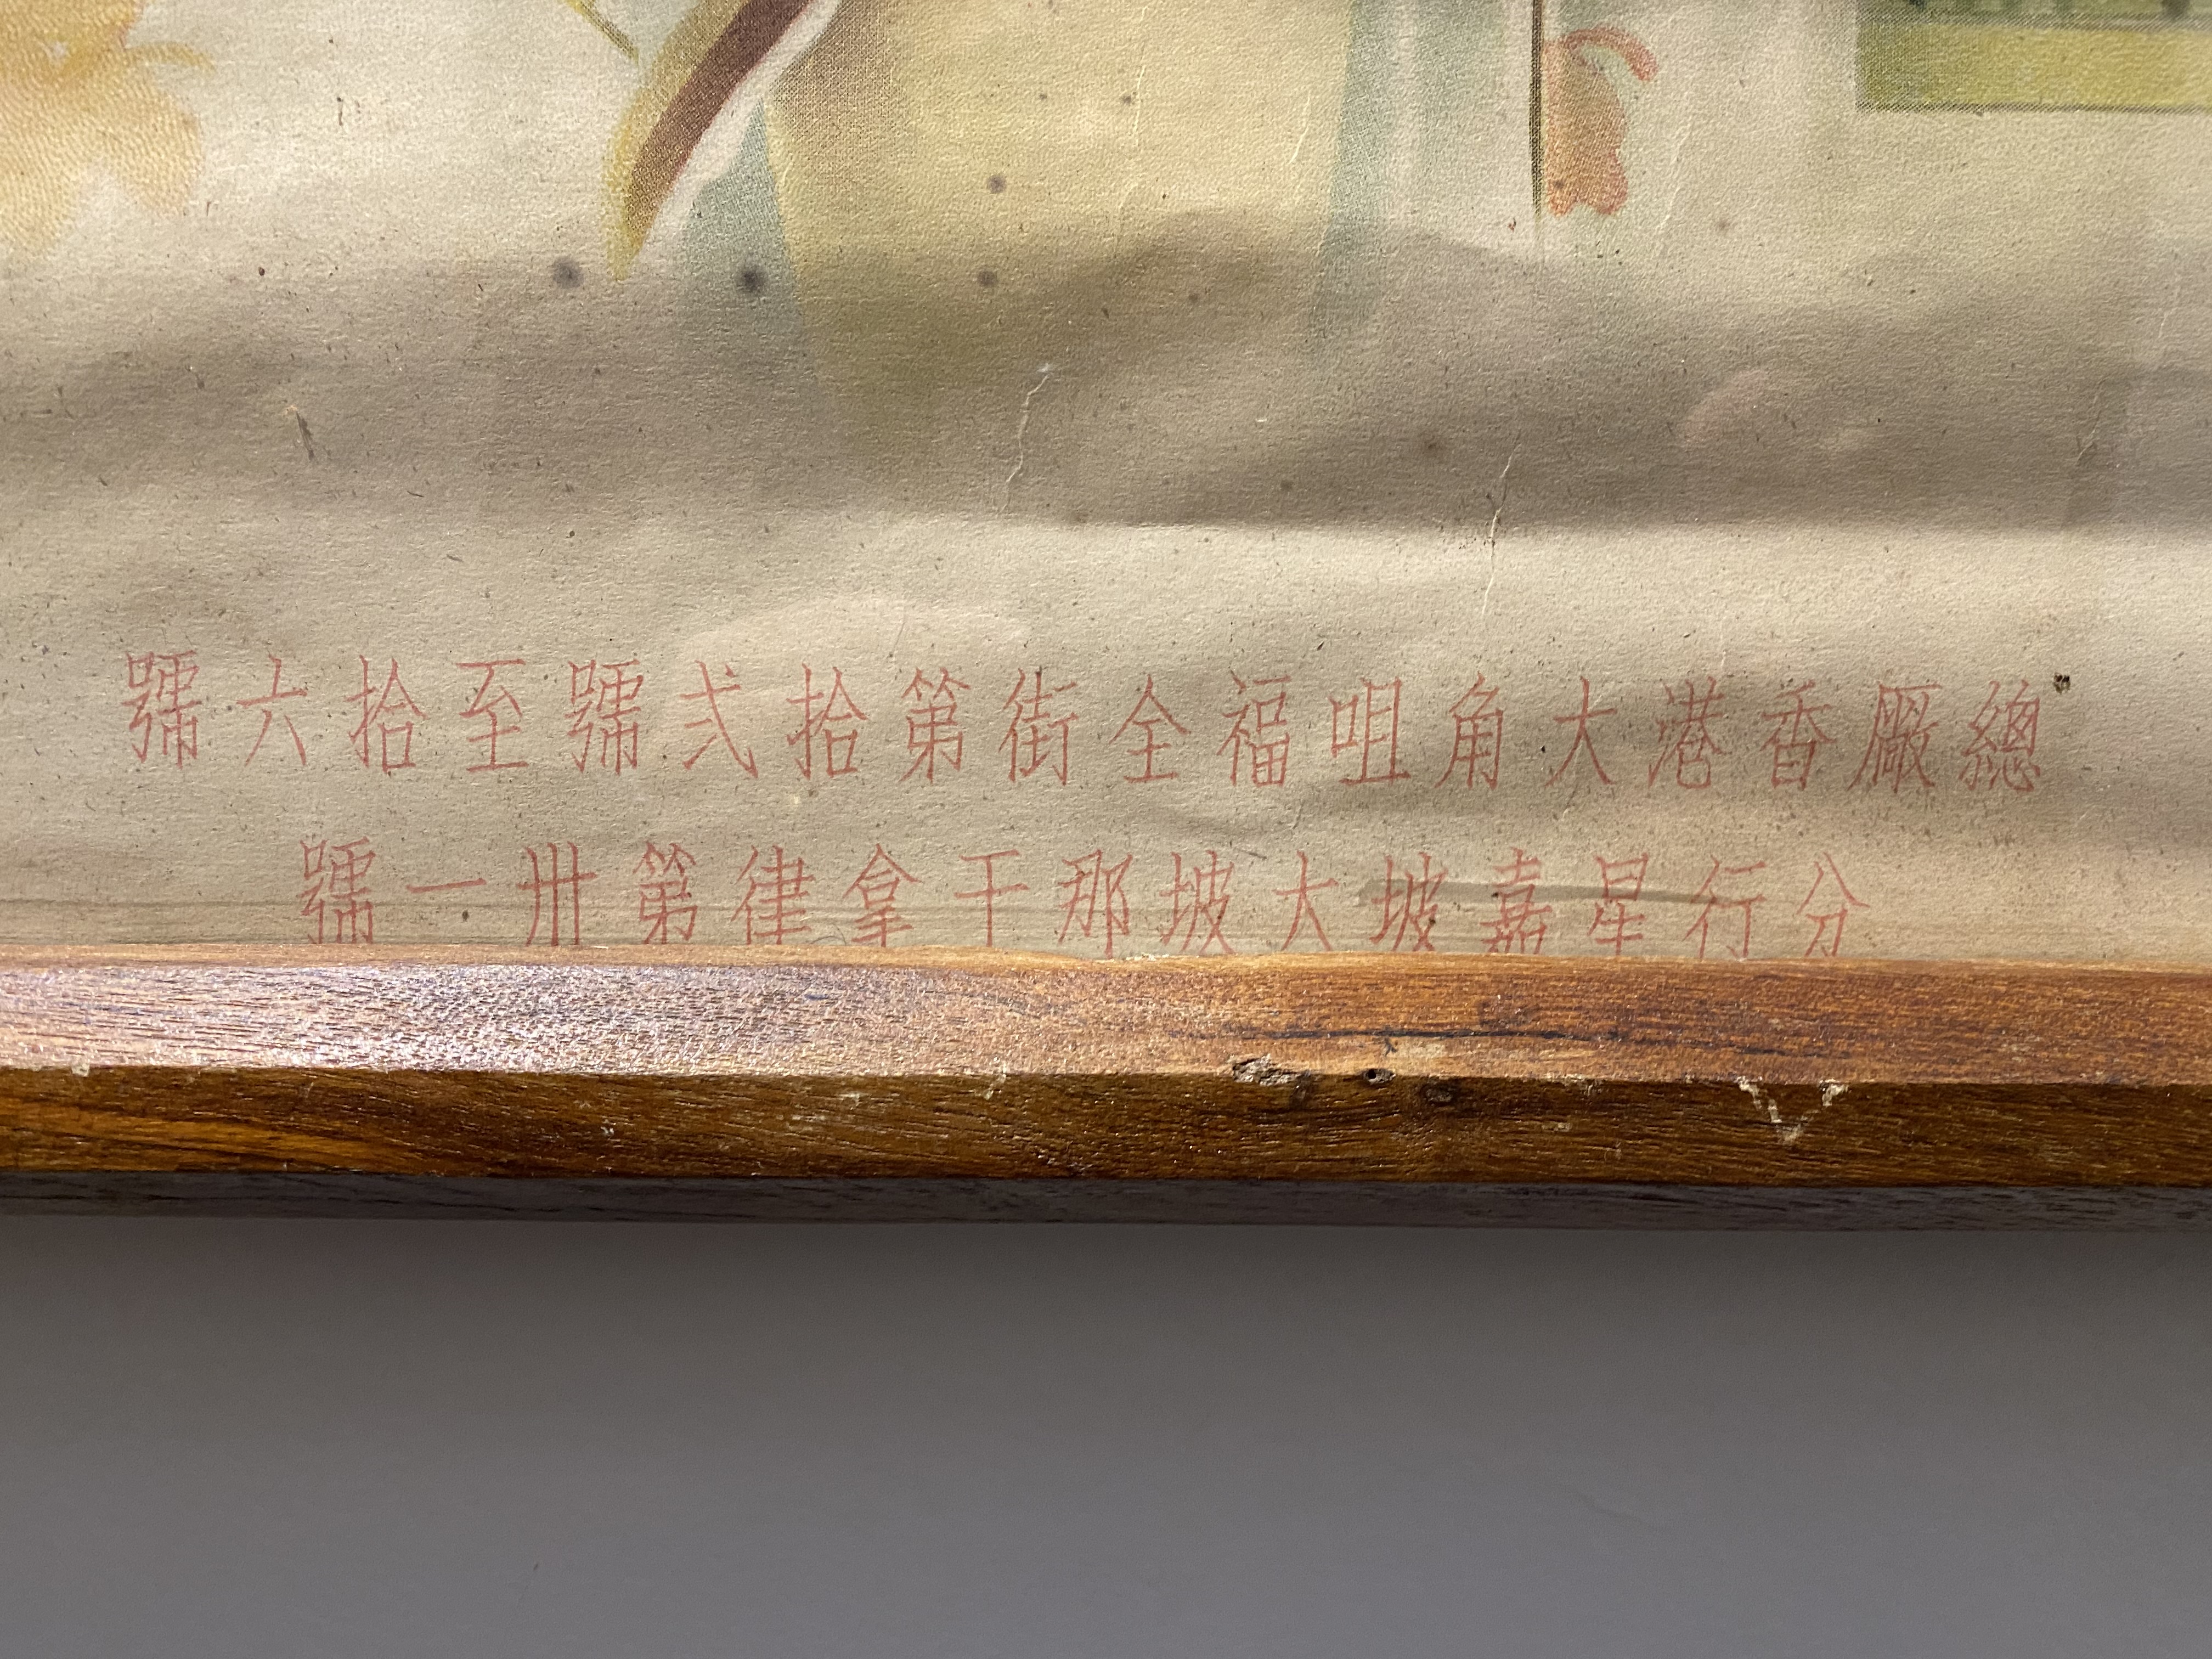 總厰香港大角咀福全街第拾弍號至拾六號
分行星嘉坡大坡那干拿律第卅一號